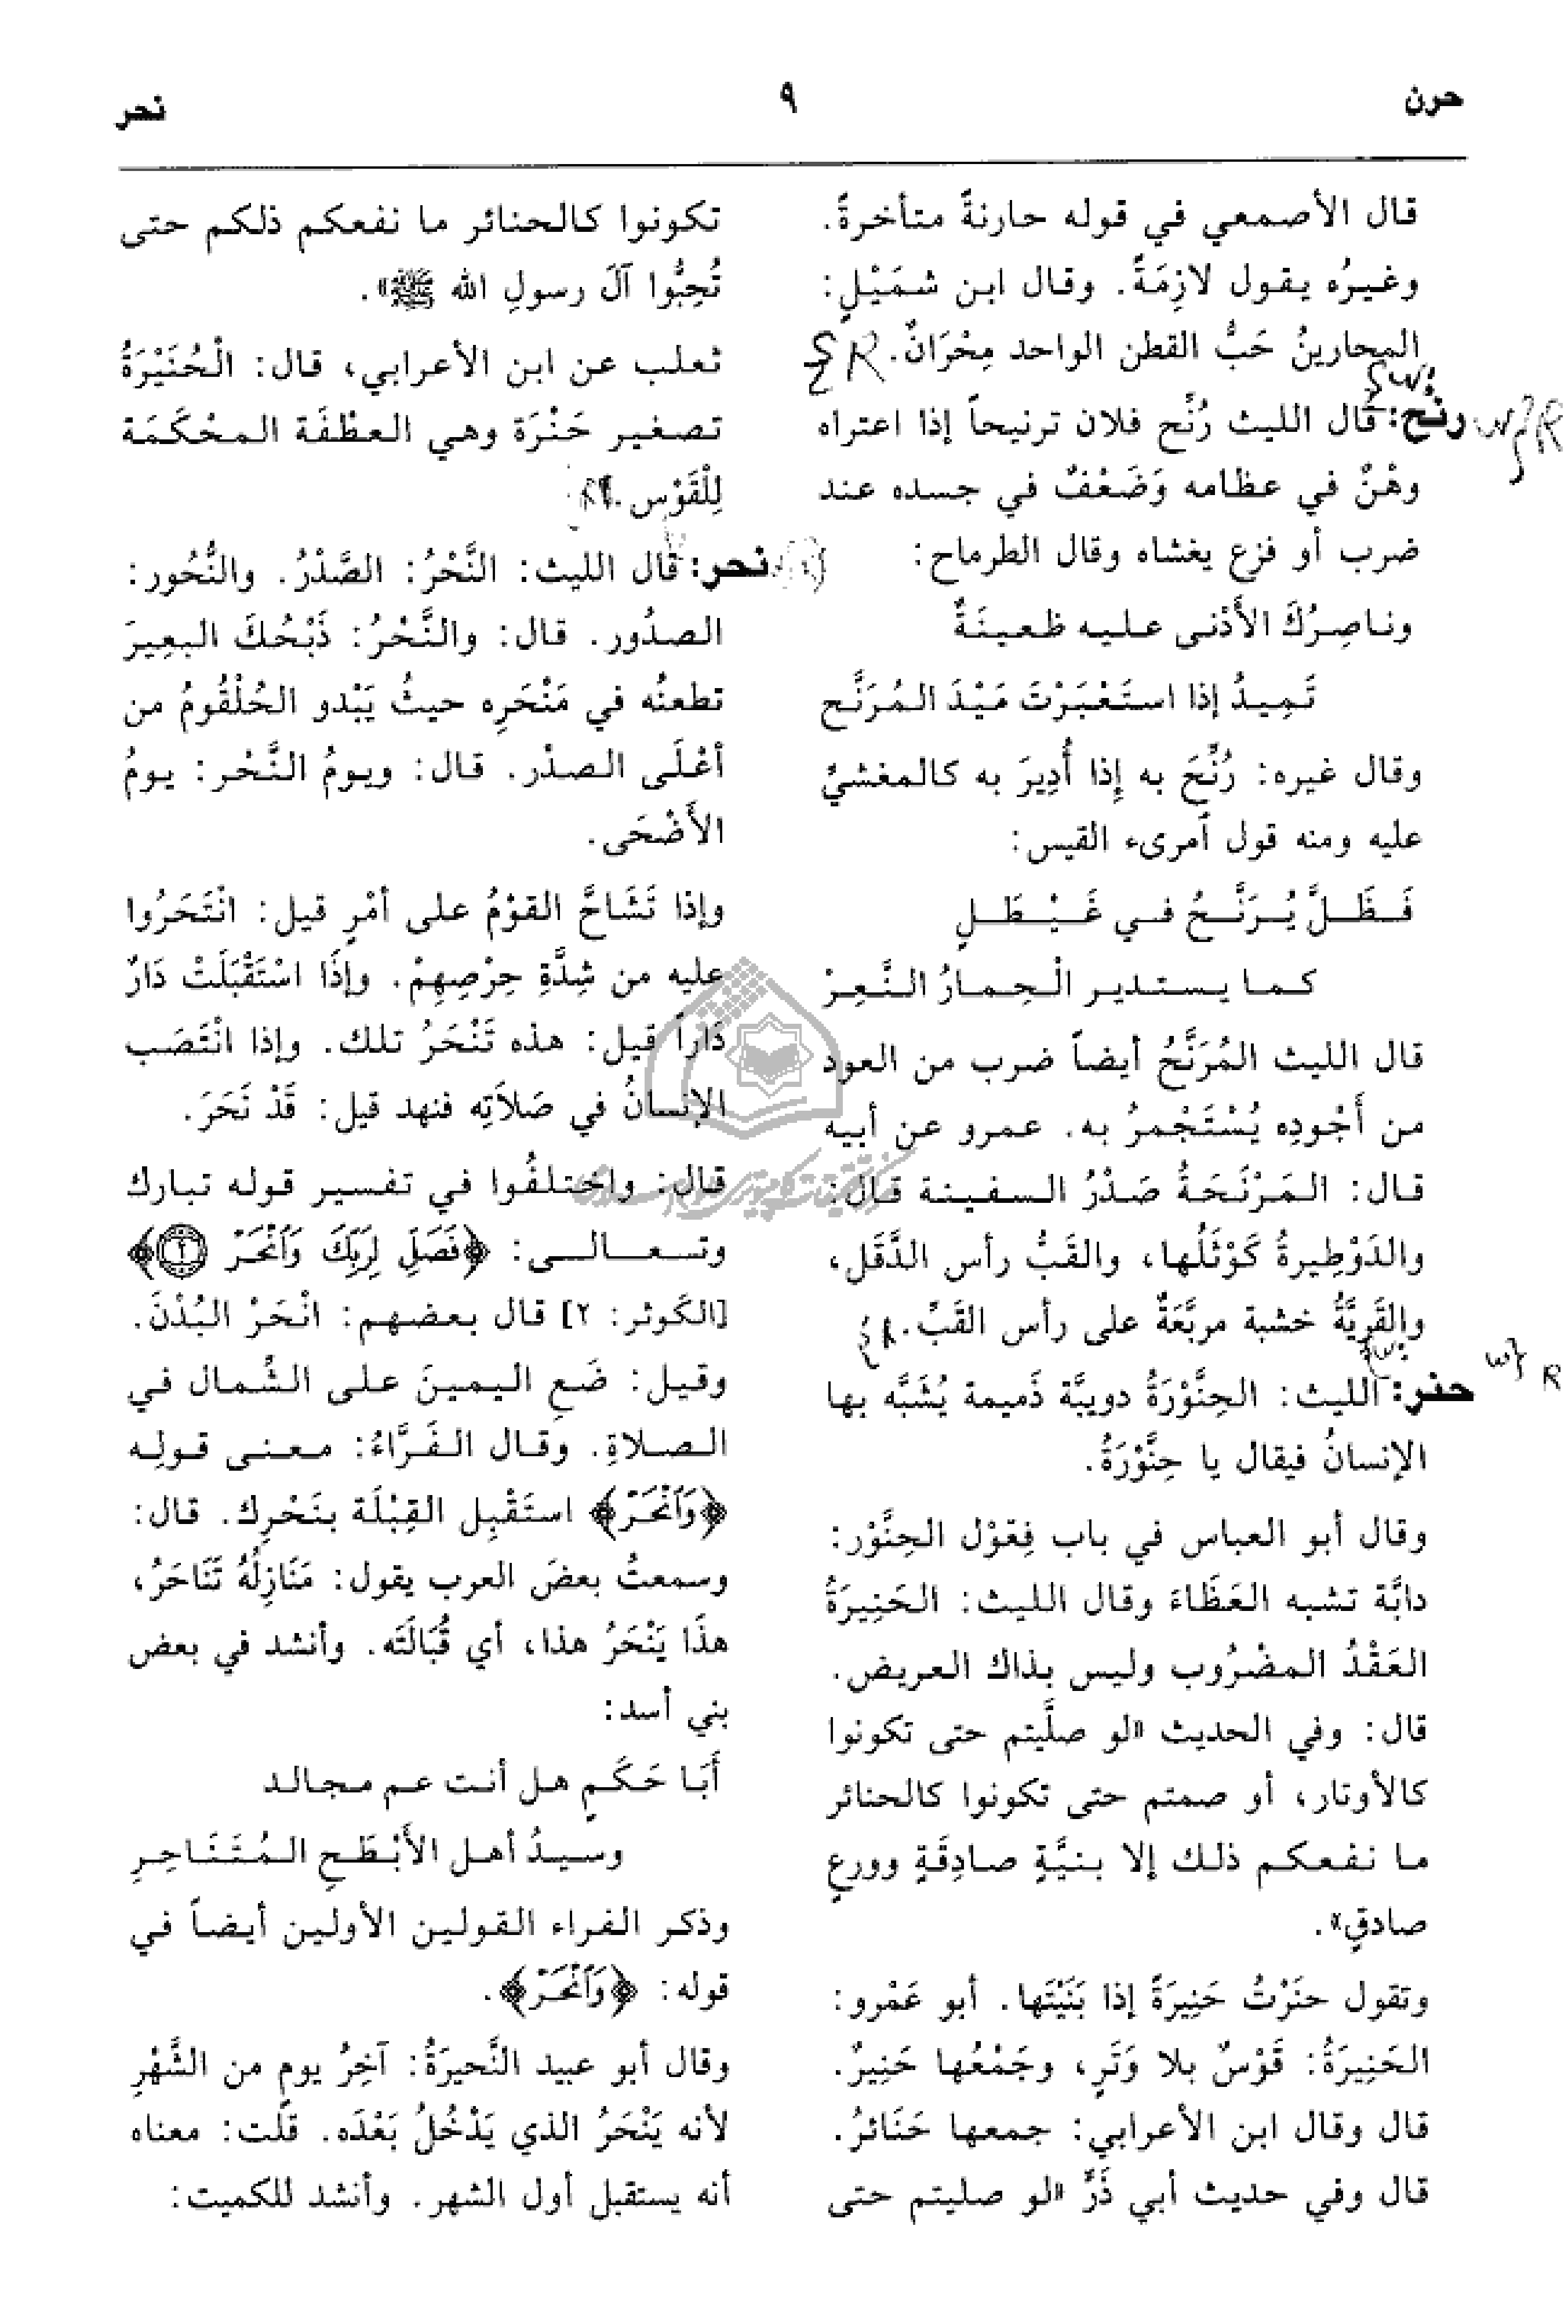 حرن
٩
نحر
قال الأصمعي في قوله حارنةً متأخرةً.
وغيرُه يقول لازِمَةً. وقال ابن شمَيْلٍ:
المحارينُ حَبُّ القطن الواحد مِحْرَانٌ.
رنح: قال الليث رُنِّح فلان ترنيحاً إذا اعتراه
وهْنٌ في عظامه وَضَعْفٌ في جسده عند
ضرب أو فزع يغشاه وقال الطرماح:
وناصِرُكَ الأَدْنى عليه ظعينَةٌ
تَمِيدُ إذا استَعْبَرْتَ مَيْدَ المُرَنَّح
وقال غيره: رُنِّحَ به إِذا أُدِيرَ به كالمغشيِّ
عليه ومنه قول ٱمرىء القيس:
فَظَلَّ يُرَنَّحُ في غَيْطَلٍ
كما يستدير الْحِمارُ النَّعِرْ
قال الليث المُرَنَّحُ أيضاً ضرب من العود
من أَجْودِه يُسْتَجْمرُ به. عمرو عن أبيه
قال: المَرْنَحَةُ صَدْرُ السفينة قال:
والدَوْطِيرةُ كَوْثَلُها، والقَبُّ رأس الدَّقَل،
والقَرِيَّةُ خشبة مربَّعَةٌ على رأس القَبِّ.
حنر: الليث: الحِنَّوْرَةُ دويبَّة ذَميمة يُشَبَّه بها
الإنسانُ فيقال يا حِنَّوْرَةُ.
وقال أبو العباس في باب فِعَوْل الحِنَّوْر:
دابَّة تشبه العَظَاءَ وقال الليث: الحَنِيرَةُ
العَقْدُ المضْرُوب وليس بذاك العريض.
قال: وفي الحديث «لو صلَّيتم حتى تكونوا
كالأوتار، أو صمتم حتى تكونوا كالحنائر
ما نفعكم ذلك إلا بنيَّةٍ صادِقَةٍ وورعٍ
صادقٍ».
وتقول حنَرْتُ حَنِيرَةً إذا بَنَيْتَها. أبو عَمْرو:
الحَنِيرَةُ: قَوْسٌ بلا وَتَرٍ، وجَمْعُها حَنِيرٌ.
قال وقال ابن الأعرابي: جمعها حَنَائرُ.
قال وفي حديث أبي ذَرٍّ «لو صليتم حتى
تكونوا كالحنائر ما نفعكم ذلكم حتى
تُحِبُّوا آلَ رسولِ الله ﷺ».
ثعلب عن ابن الأعرابي، قال: الْحُنَيْرَةُ
تصغير حَنْرَة وهي العطْفَة المحْكَمَة
لِلْقَوْس.
نحر: قال الليث: النَّحْرُ: الصَّدْرُ. والنُّحُور:
الصدُور. قال: والنَّحْرُ: ذَبْحُكَ البعِيرَ
تطعنُه في مَنْحَرِه حيثُ يَبْدو الحُلْقُومُ من
أعْلَى الصدْر. قال: ويومُ النَّحْر: يومُ
الأَضْحَى.
وإذا تَشَاحَّ القوْمُ على أمْرٍ قيل: انْتَحَرُوا
عليه من شِدَّةِ حِرْصِهِمْ. وإذَا اسْتَقْبَلَتْ دَارٌ
دَاراً قيل: هذه تَنْحَرُ تلك. وإذا انْتَصَب
الإنسانُ في صَلاَتِه فنهد قيل: قَدْ نَحَرَ.
قال: واختلفُوا في تفسير قوله تبارك
وتسعالى: ﴿فَصَلِّ لِرَبِّكَ وَٱنْحَرْ ٢﴾
[الكَوثر: ٢] قال بعضهم: انْحَرْ البُدْنَ.
وقيل: ضَعِ اليمينَ على الشِّمال في
الصلاةِ. وقال الفَرَّاءُ: معنى قولِه
﴿وَٱنْحَرْ﴾ استَقْبِل القِبْلَة بنَحْرِك. قال:
وسمعتُ بعضَ العرب يقول: مَنَازِلُهُ تَنَاحَرُ،
هذَا يَنْحَرُ هذا، أي قُبَالَتَه. وأنشد في بعض
بني أسد:
أَبَا حَكَمٍ هل أنت عم مجالد
وسيدُ أهل الأَبْطَحِ المُتَنَاحِرِ
وذكر الفراء القولين الأولين أيضاً في
قوله: ﴿وَٱنْحَرْ﴾.
وقال أبو عبيد النَّحيرَةُ: آخِرُ يومٍ من الشَّهْرِ
لأنه يَنْحَرُ الذي يَدْخُلُ بَعْدَه. قلت: معناه
أنه يستقبل أول الشهر. وأنشد للكميت: